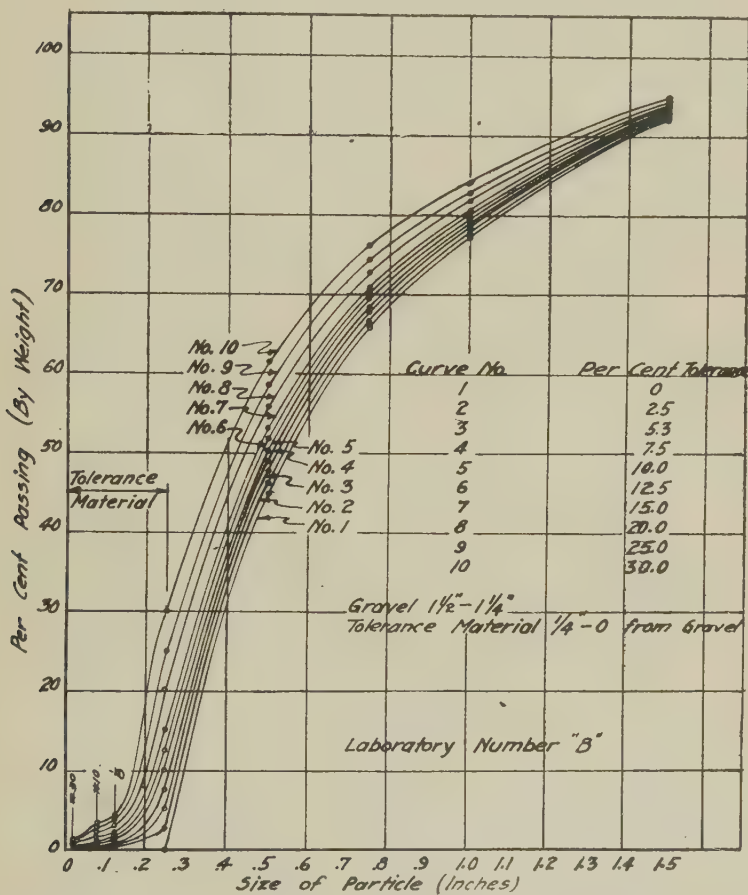 100
90
80
70
60
50
40
30
20
10
0
Per Cent Passing (By Weight)
No. 10
No. 9
No. 8
No. 7
No. 6
No. 5
No. 4
No. 3
No. 2
No. 1
Tolerance
Material
Curve No. Per Cent Tolerance
1 0
2 2.5
3 5.3
4 7.5
5 10.0
6 12.5
7 15.0
8 20.0
9 25.0
10 30.0
Gravel 1½"-1¼"
Tolerance Material ¼"-0 from Gravel
Laboratory Number "B"
0 .1 .2 .3 .4 .5 .6 .7 .8 .9 1.0 1.1 1.2 1.3 1.4 1.5
Size of Particle (Inches)